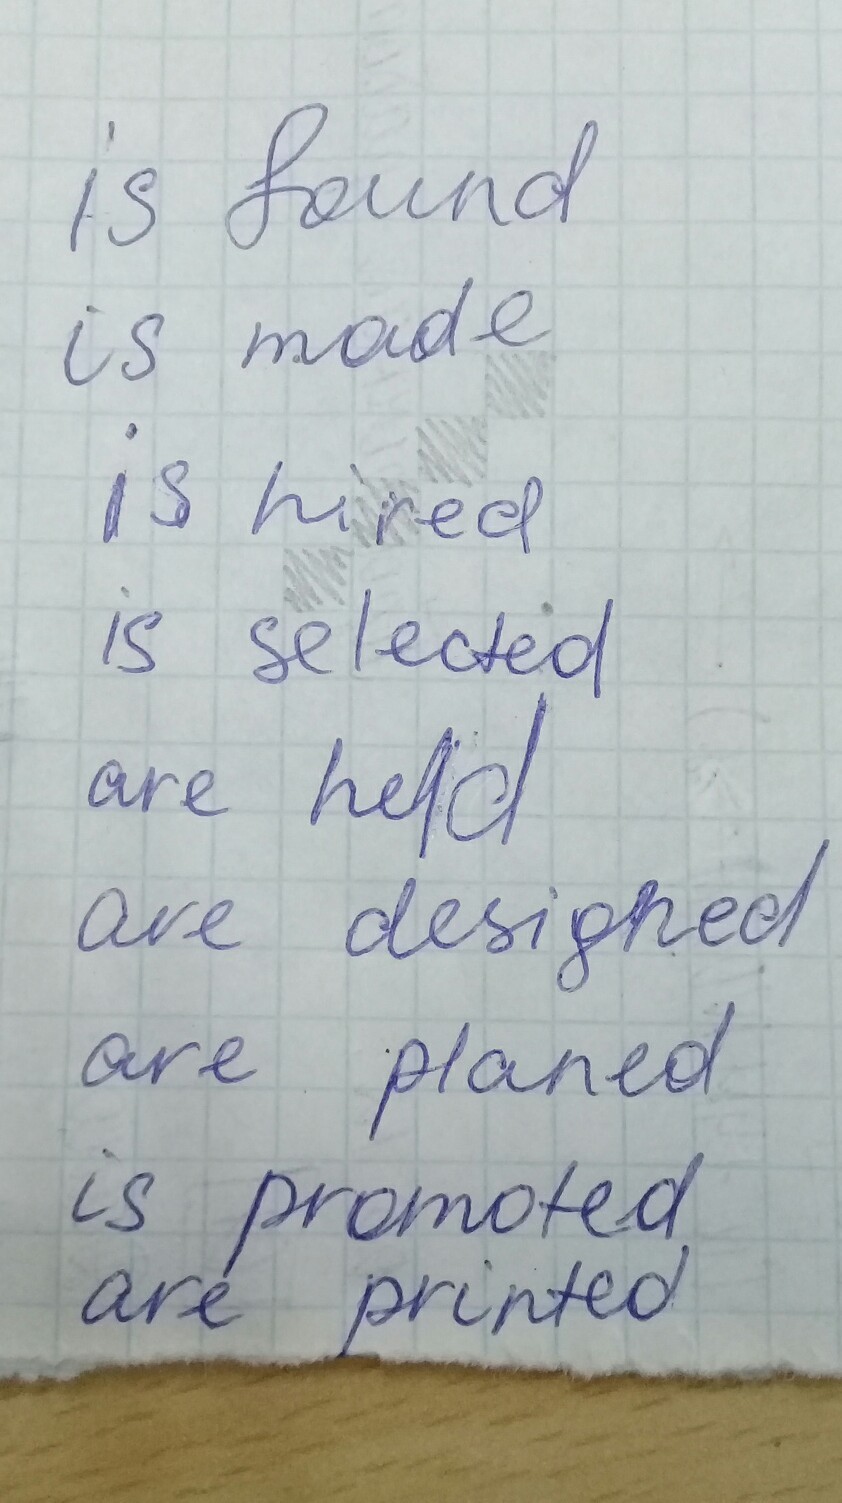 is found
is made
is hired
is selected
are held
are designed
are planed
is promoted
are printed